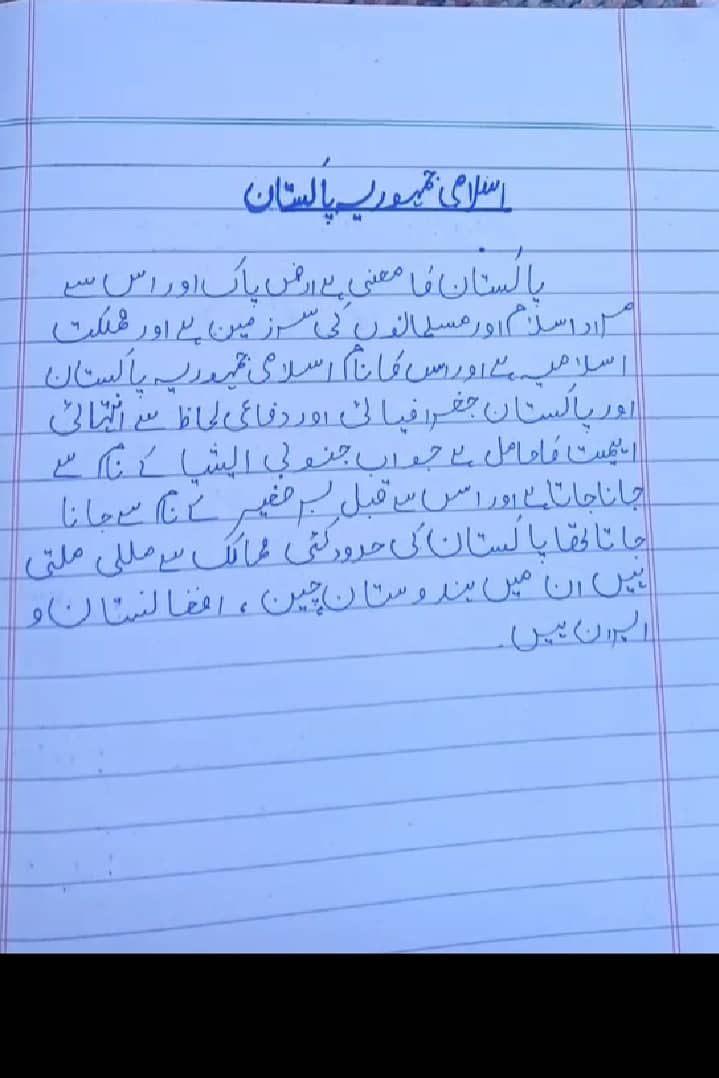 اسلامی جمہوریہ پاکستان
پاکستان کا معنی ہے ارض پاک اور اس سے
مراد اسلام اور مسلمانوں کی سرزمین ہے اور مملکت
اسلامیہ ہے اور اس کا نام اسلامی جمہوریہ پاکستان
اور پاکستان جغرافیائی اور دفاعی لحاظ سے انتہائی
اہمیت کا حامل ہے جو اب جنوبی ایشیا کے نام سے
جانا جاتا ہے اور اس سے قبل برصغیر کے نام سے جانا
جاتا تھا پاکستان کی حدود کئی ممالک سے ملتی
ہیں ان میں ہندوستان چین ، افغانستان و
ایران ہیں.